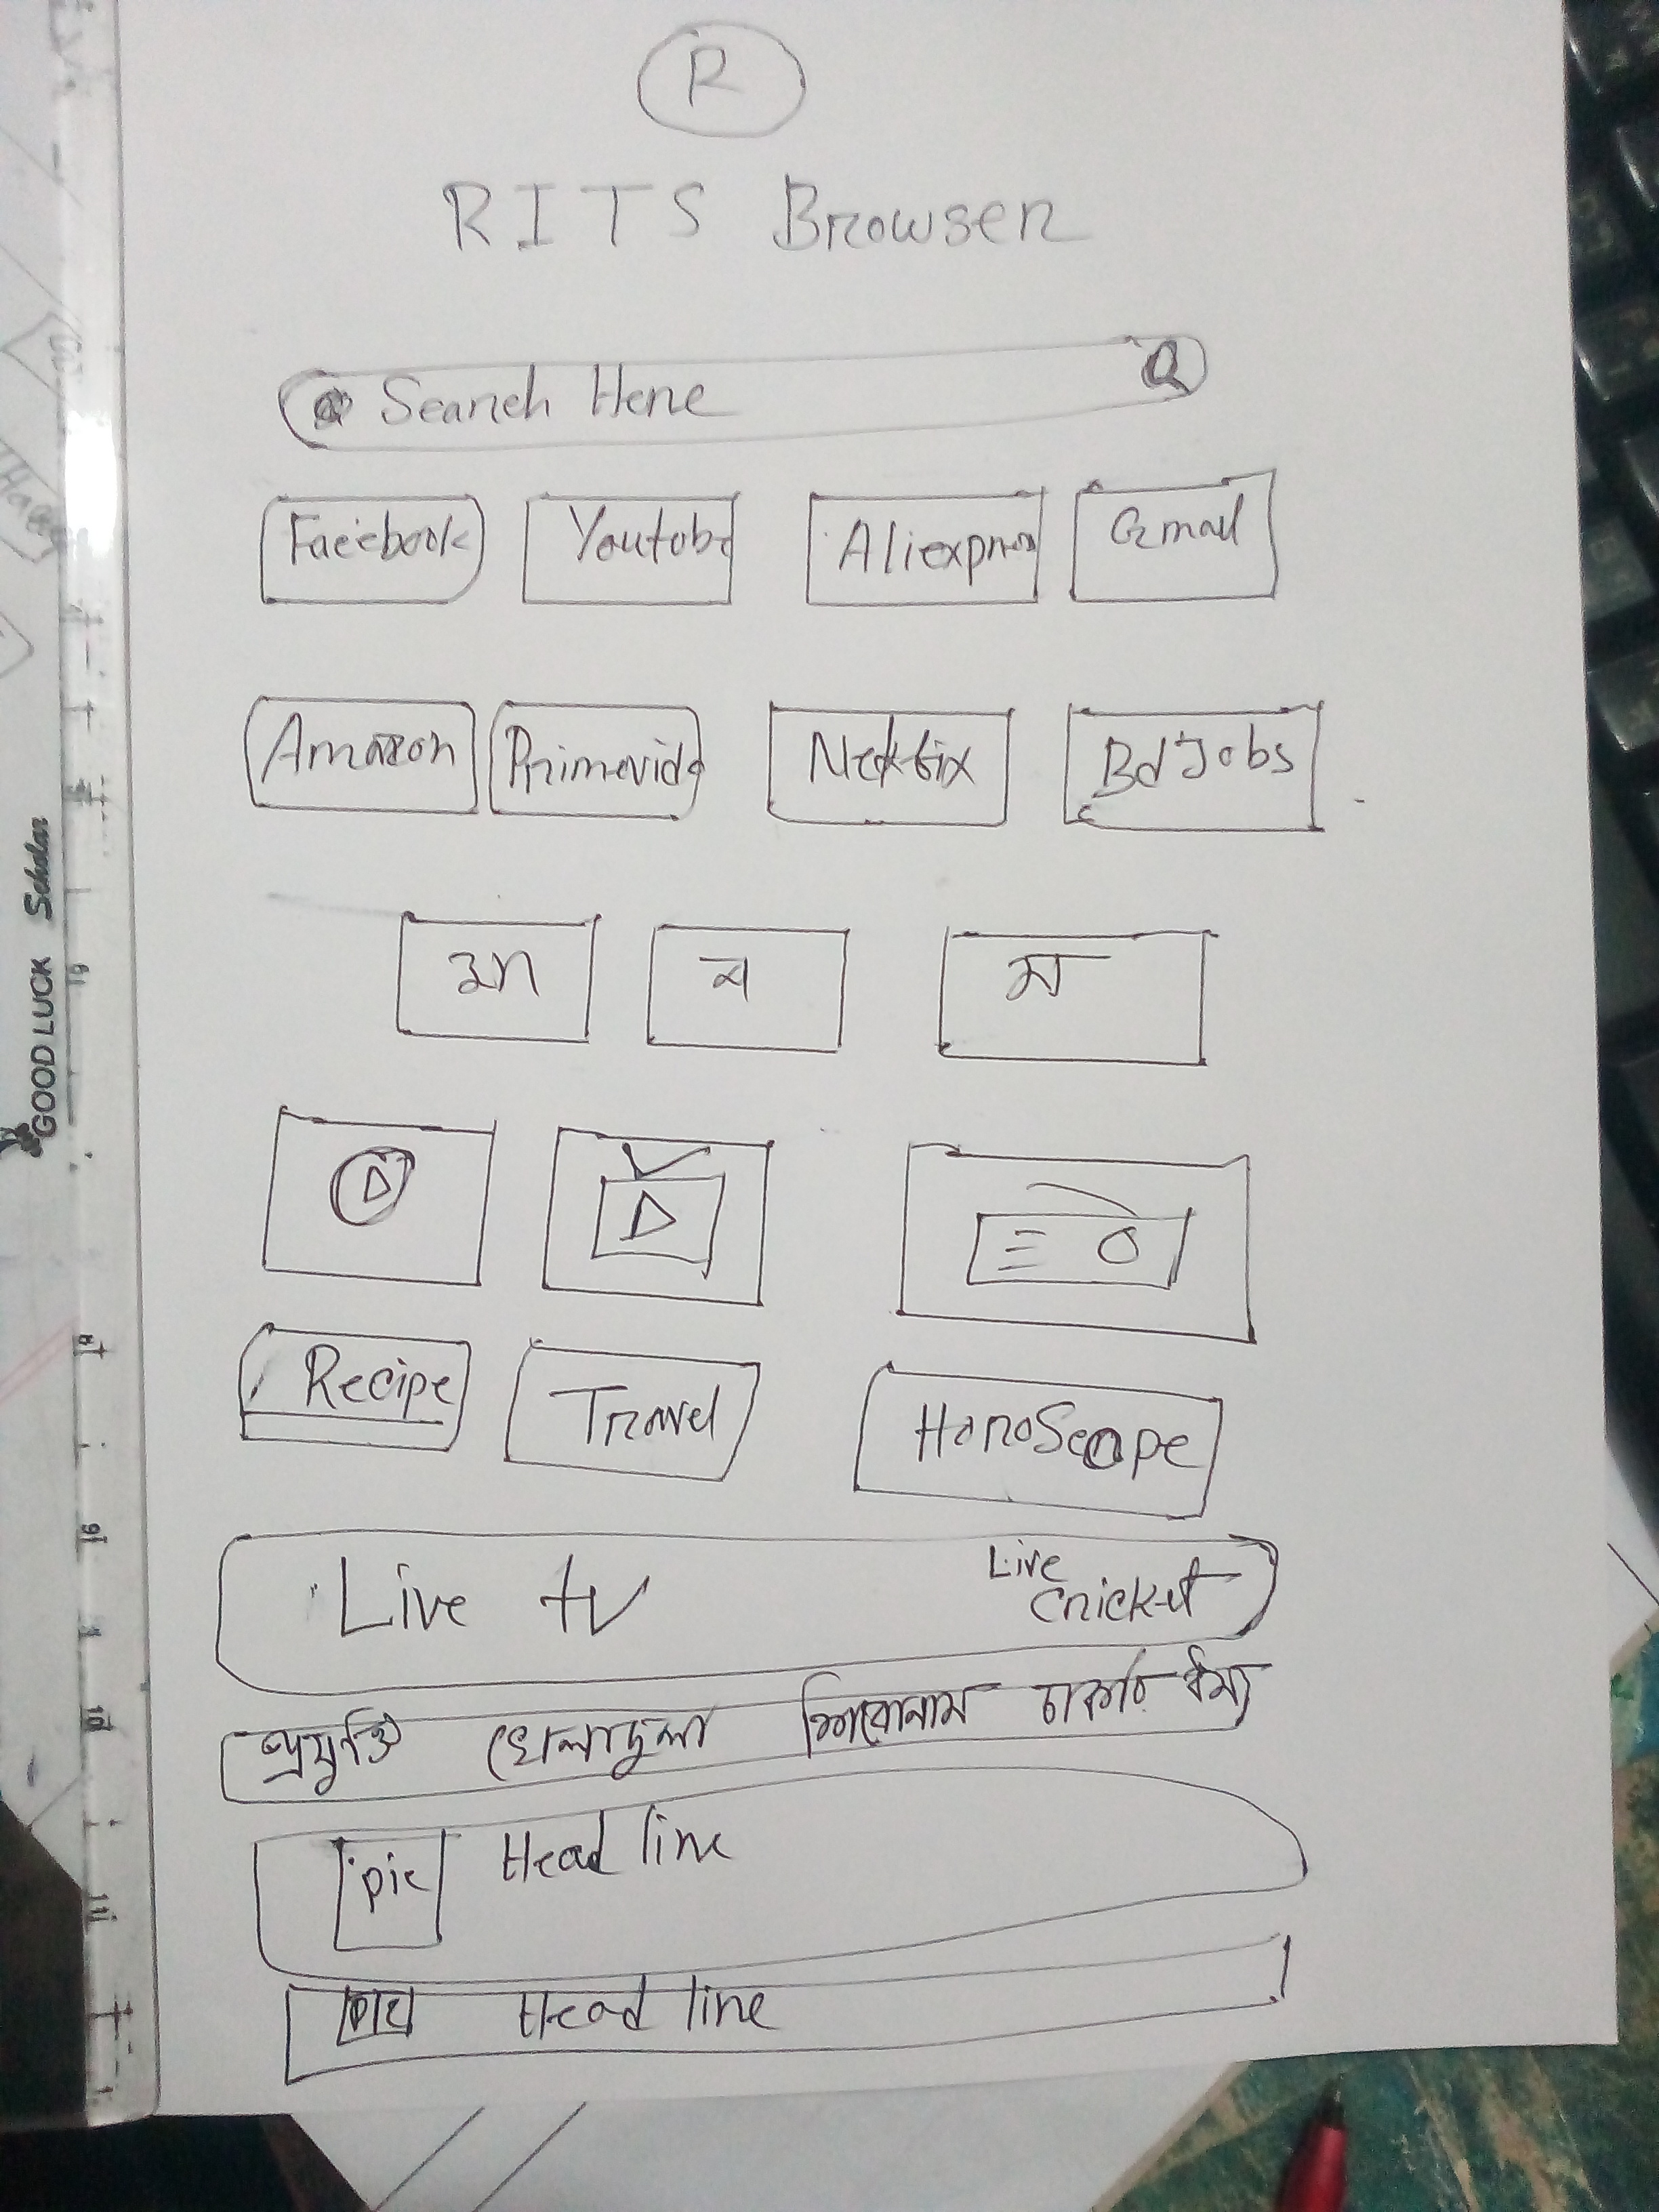 R
RITS Browser
Search Here
Facebook Youtube Aliexpress Gmail
Amazon Primevideo Netflix Bd Jobs
ন ম
Recipe Travel HoroScope
Live tv Live Cricket
প্রযুক্তি খেলাধুলা শিরোনাম চাকরি
pic Head line
pic Head line
GOOD LUCK Scholar